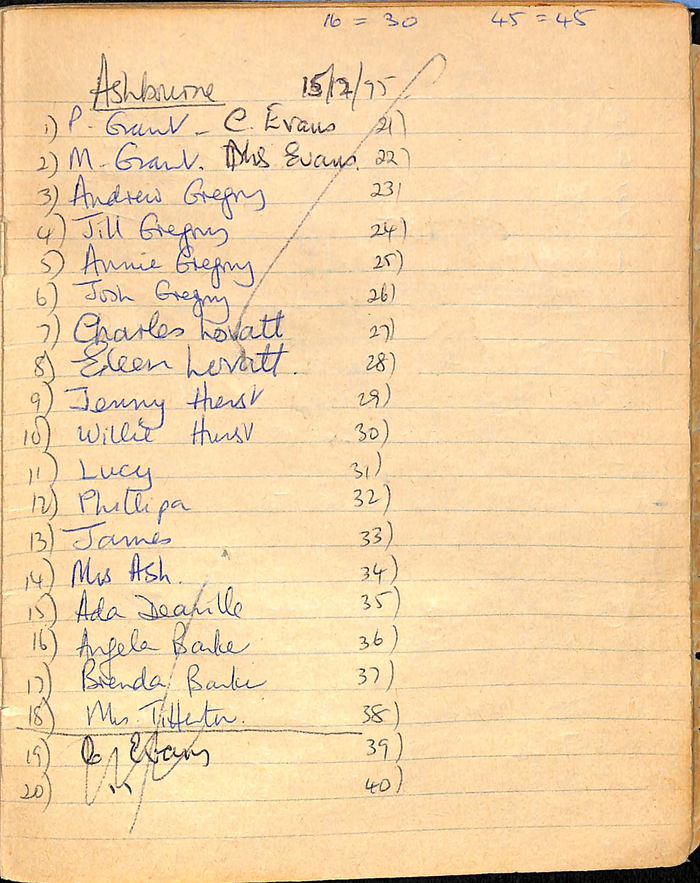 16 = 30 45 = 45
Ashbourne 15/12/95
1) P. Grant - C. Evans 21)
2) M. Grant. Mrs Evans. 22)
3) Andrew Gregory 23)
4) Jill Gregory 24)
5) Annie Gregory 25)
6) Josh Gregory 26)
7) Charles Lovatt 27)
8) Eileen Lovatt. 28)
9) Jenny Hurst 29)
10) Willie Hurst 30)
11) Lucy 31)
12) Phillipa 32)
13) James 33)
14) Mrs Ash. 34)
15) Ada Deaville 35)
16) Angela Barke 36)
17) Brenda Barke 37)
18) Mrs Titterton. 38)
19) Evans 39)
20) 40)